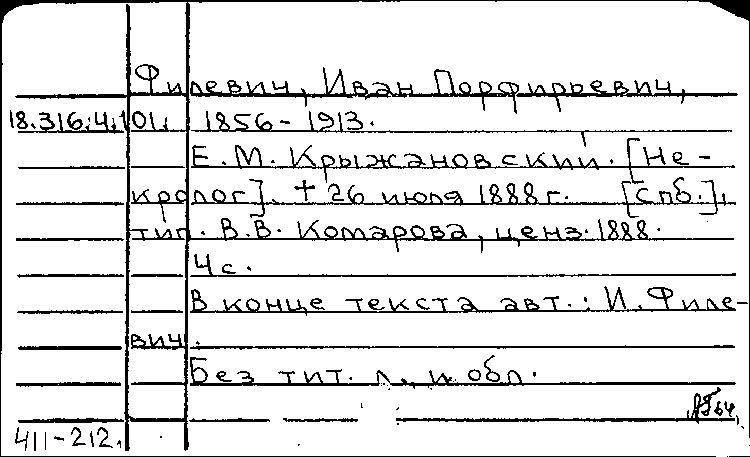 Филевич, Иван Порфирьевич,
18.316.4.101. 1856-1913.
Е.М. Крыжановский. [Не-
кролог]. † 26 июля 1888 г. [Спб.],
тип. В.В. Комарова, ценз. 1888.
4 с.
В конце текста авт.: И. Филе-
вич.
Без тит. л. и обл.
411-212.